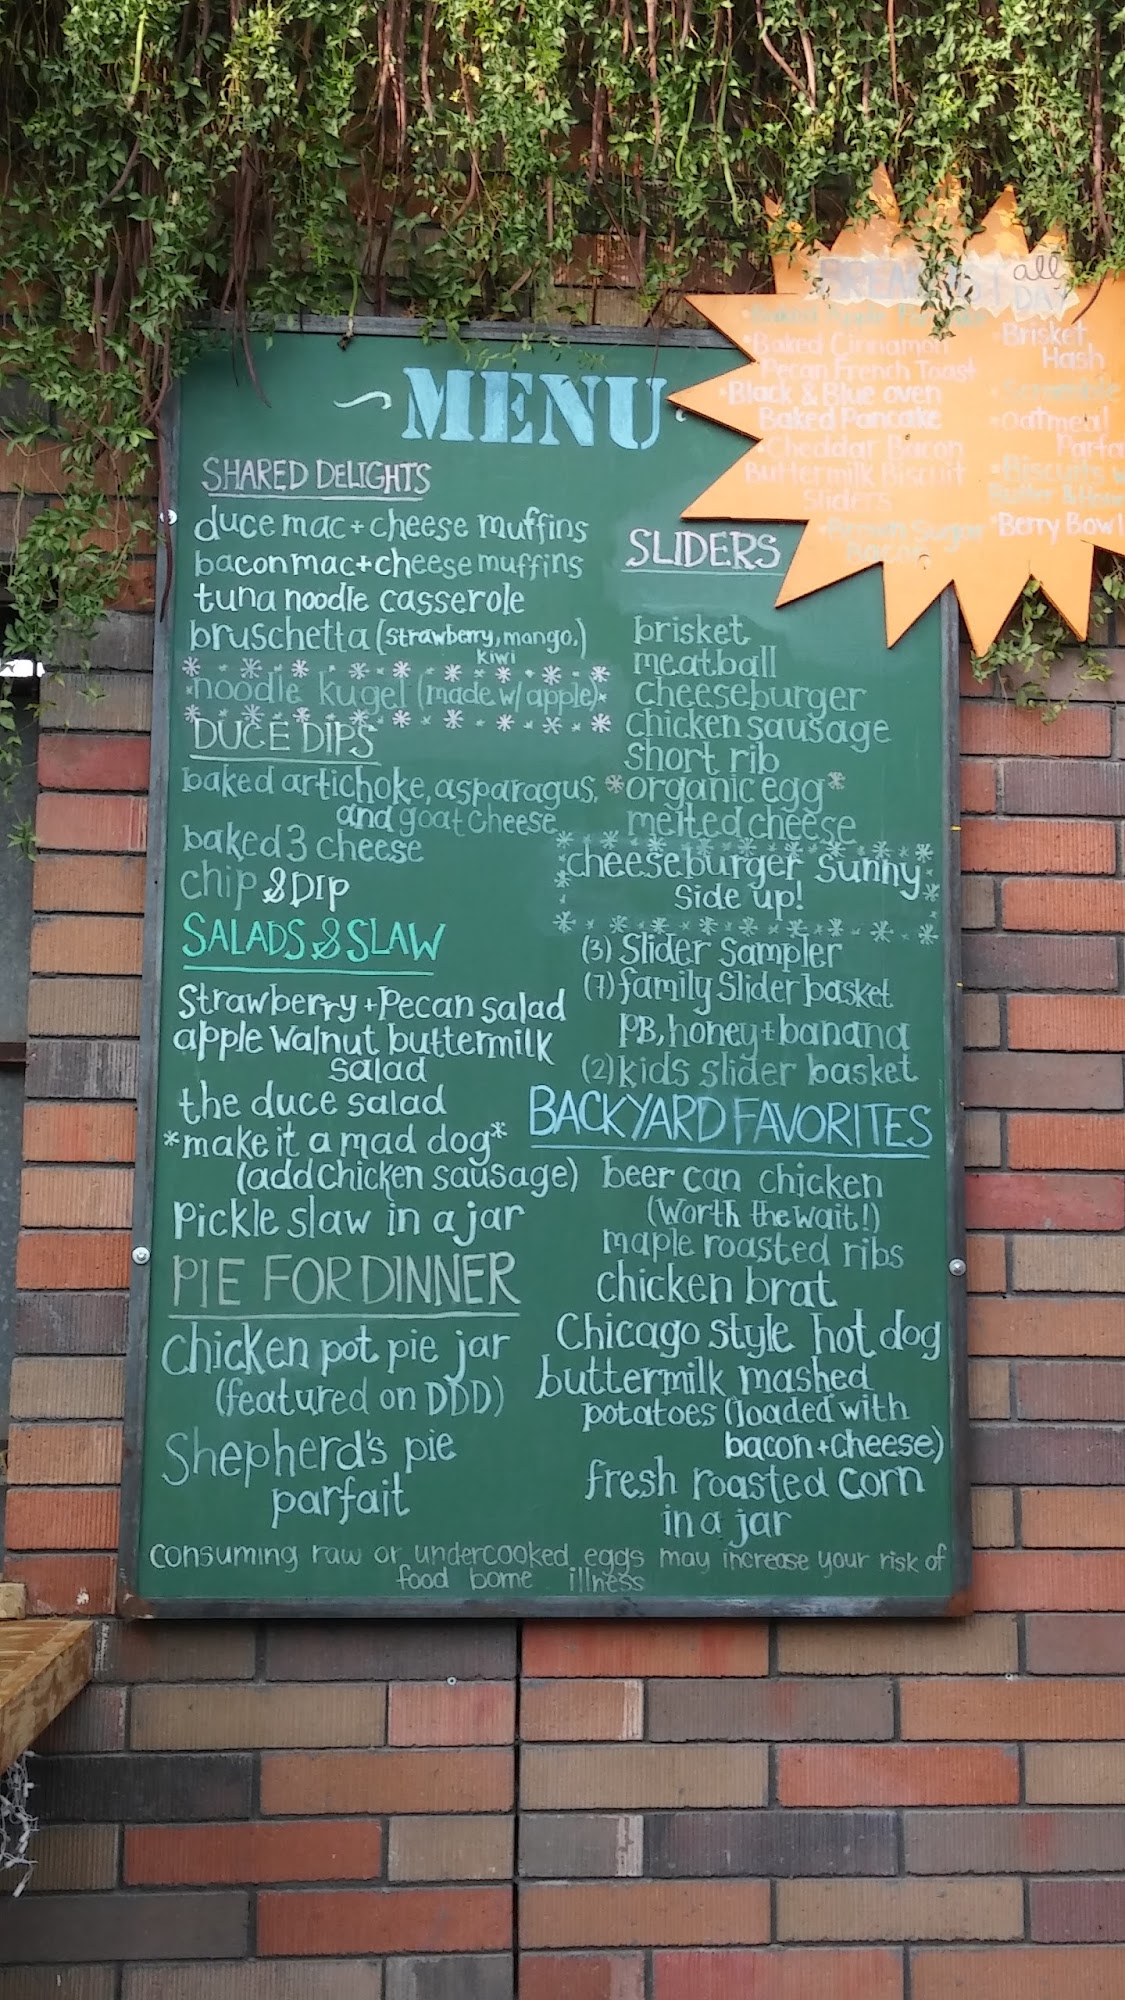 MENU
SHARED DELIGHTS
duce mac + cheese muffins
bacon mac + cheese muffins
tuna noodle casserole
bruschetta (strawberry, mango,)
kiwi
noodle kugel (made w/ apple)
DUCE DIPS
baked artichoke, asparagus,
and goat cheese
baked 3 cheese
chip & DIP
SALADS & SLAW
Strawberry + Pecan salad
apple walnut buttermilk
salad
the duce salad
*make it a mad dog*
(add chicken sausage)
Pickle slaw in a jar
PIE FOR DINNER
chicken pot pie jar
(featured on DDD)
Shepherd's pie
parfait
SLIDERS
brisket
meatball
cheeseburger
chicken sausage
short rib
*organic egg*
melted cheese
cheeseburger sunny
side up!
(3) Slider sampler
(7) family Slider basket
PB, honey + banana
(2) kids slider basket
BACKYARD FAVORITES
beer can chicken
(Worth the wait!)
maple roasted ribs
chicken brat
Chicago style hot dog
buttermilk mashed
potatoes (loaded with
bacon + cheese)
fresh roasted corn
in a jar
consuming raw or undercooked eggs may increase your risk of
food borne illness
all
DAY
Baked Apple
•Baked Cinnamon
Pecan French Toast
•Black & Blue oven
Baked Pancake
•Cheddar Bacon
Buttermilk Biscuit
Sliders
•Brown Sugar
Bacon
•Brisket
Hash
•Scramble
•Oatmeal
•Biscuits
•Berry Bowl